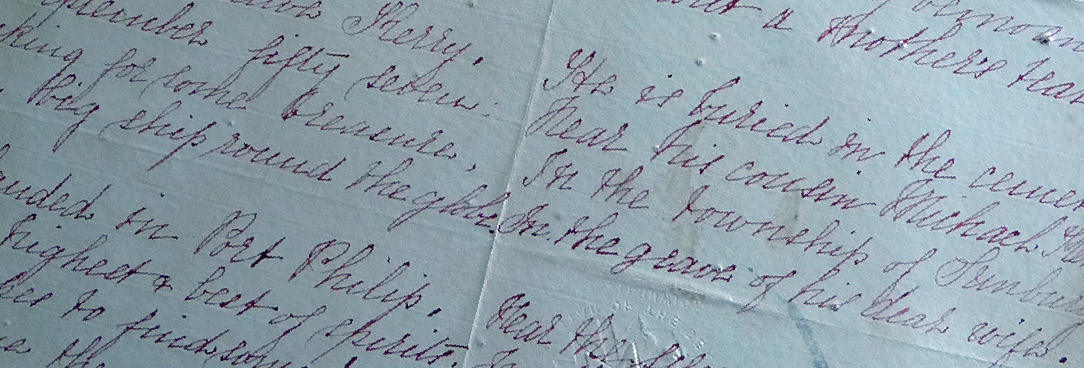 Kerry,
September fifty seven.
king for some treasure,
big ship round the globe
anded in Port Philip,
highest & best of spirits.
to find some
the
a Mothers tear
He is buried in the cemet
Near his cousin Michael
In the township of Sunbury
In the grave of his dear wife.
Near the
OF THE